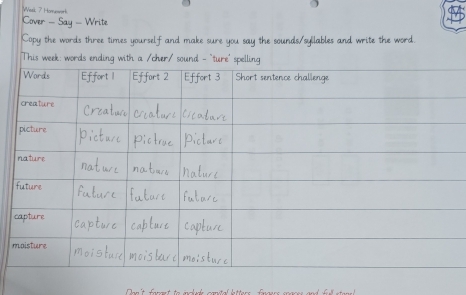 Week 7 Homework
Cover – Say – Write
Copy the words three times yourself and make sure you say the sounds/syllables and write the word.
This week: words ending with a /cher/ sound – 'ture' spelling
Words Effort 1 Effort 2 Effort 3 Short sentence challenge
creature creature creature creature
picture picture pictrue picture
nature nature nature nature
future future future future
capture capture capture capture
moisture moisture moisture moisture
Don't forget to include capital letters, fingers spaces and full stops!